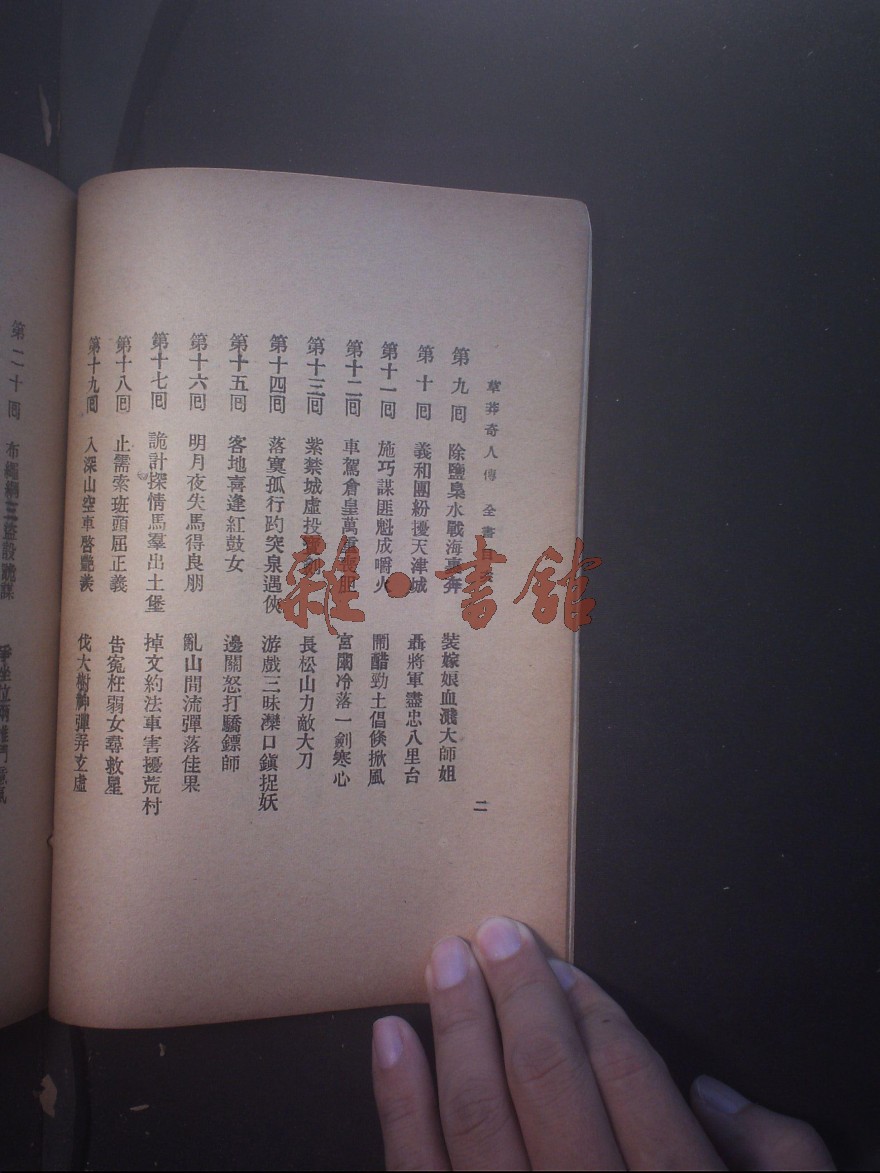 草莽奇人傳 全書目錄 二
第九回 除鹽梟水戰海 裝嫁娘血濺大師姐
第十回 義和團紛擾天津城 聶將軍盡忠八里台
第十一回 施巧謀匪魁成嚼火 鬧醋勁土倡倐掀風
第十二回 車駕倉皇萬 胆 宮闈冷落一劍寒心
第十三回 紫禁城虛投 劍 長松山力敵大刀
第十四回 落寞孤行趵突泉遇俠 游戲三昧濼口鎮捉妖
第十五回 客地喜逢紅鼓女 邊關怒打驕鏢師
第十六回 明月夜失馬得良朋 亂山間流彈落佳果
第十七回 詭計探情馬羣出土堡 掉文約法車害擾荒村
第十八回 止需索班頭屈正義 告冤枉弱女尋救星
第十九回 入深山空車啓艷羨 伐大樹神彈弄玄虛
第二十回 布繩網 設詭謀
雜·書舘